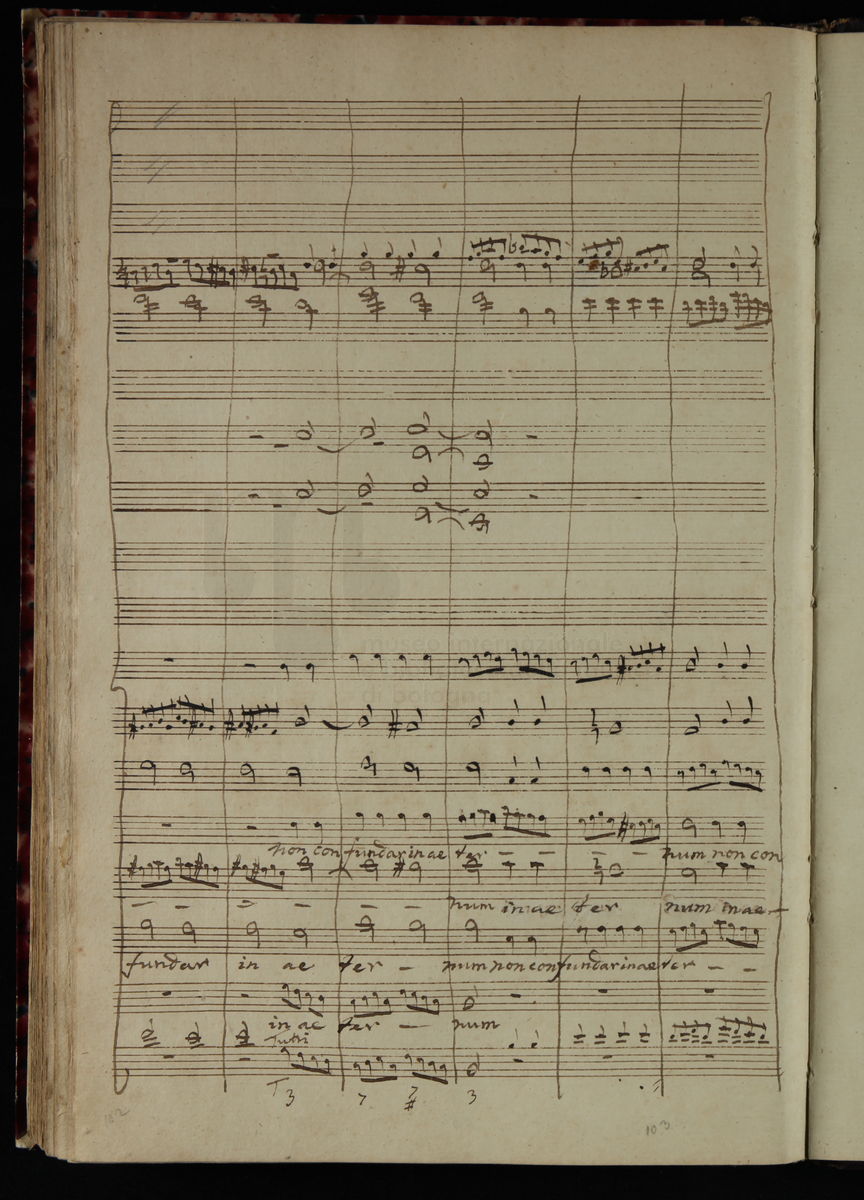 non con fundar in ae ter - - - - num non con
- - - - - - num in ae ter num in ae -
fundar in ae ter - num non con fundar in ae ter - -
in ae ter - num
Tutti
T 3 7 7 # 3
102
103